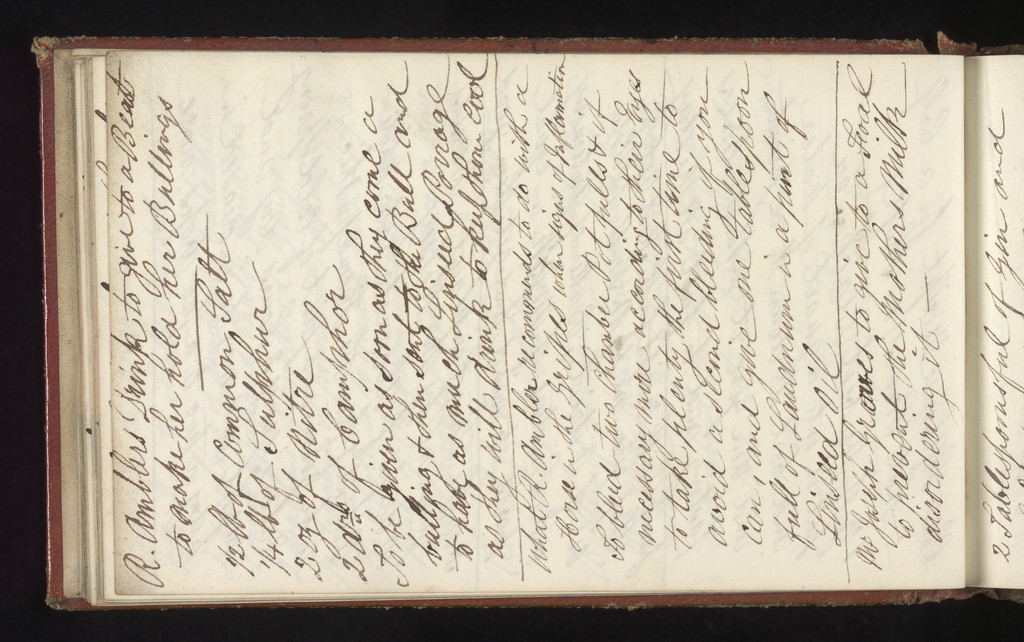 R. Amblers Drink to give to a Beast
to make her hold Her Bullings
1/2 lb of Common Salt
1/4 lb of Sulphur
2 oz of Nitre
2 drs of Camphor
To be given as soon as they come a
bulling & then sent to the Bull and
to have as much Linseed Porrage
as they will drink to keep them cool
What R. Ambler recommends to do with a
Horse in the Gripes when signs of Inflamation
to bleed two Chamber Pot fulls & if
necessary more according to their Eyes
to take plenty the first time to
avoid a second bleeding if you
can, and give one Tablespoon
full of Laudnum in a pint of
Linseed Oil
Mr Joseph Graves to give to a Foal
to prevent the Mothers Milk
disordering it —
2 Tablespoonsful of Gin and